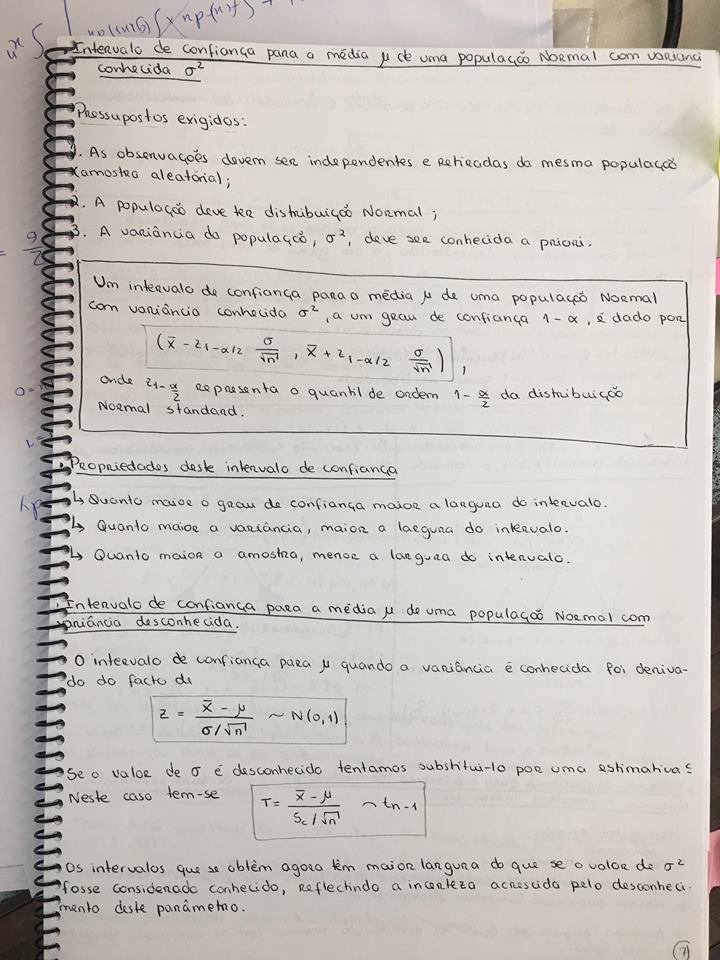 Intervalo de confiança para a média μ de uma população Normal com
conhecida σ²
Pressupostos exigidos:
1. As observações devem ser independentes e retiradas da mesma população
(amostra aleatória);
2. A população deve ter distribuição Normal;
3. A variância da população, σ², deve ser conhecida a priori.
Um intervalo de confiança para a média μ de uma população Normal
com variância conhecida σ², a um grau de confiança 1-α, é dado por
(x̄ - z1-α/2 σ/√n , x̄ + z1-α/2 σ/√n) ,
onde z1-α/2 representa o quantil de ordem 1-α/2 da distribuição
Normal standard.
. Propriedades deste intervalo de confiança
↳ Quanto maior o grau de confiança maior a largura do intervalo.
↳ Quanto maior a variância, maior a largura do intervalo.
↳ Quanto maior a amostra, menor a largura do intervalo.
. Intervalo de confiança para a média μ de uma população Normal com
variância desconhecida.
O intervalo de confiança para μ quando a variância é conhecida foi deriva-
do do facto de
Z = x̄ - μ / σ/√n ~ N(0,1)
Se o valor de σ é desconhecido tentamos substitui-lo por uma estimativa s
Neste caso tem-se T = x̄ - μ / Sc/√n ~ tn-1
Os intervalos que se obtêm agora têm maior largura do que se o valor de σ²
fosse considerado conhecido, reflectindo a incerteza acrescida pelo desconheci-
mento deste parâmetro.
7